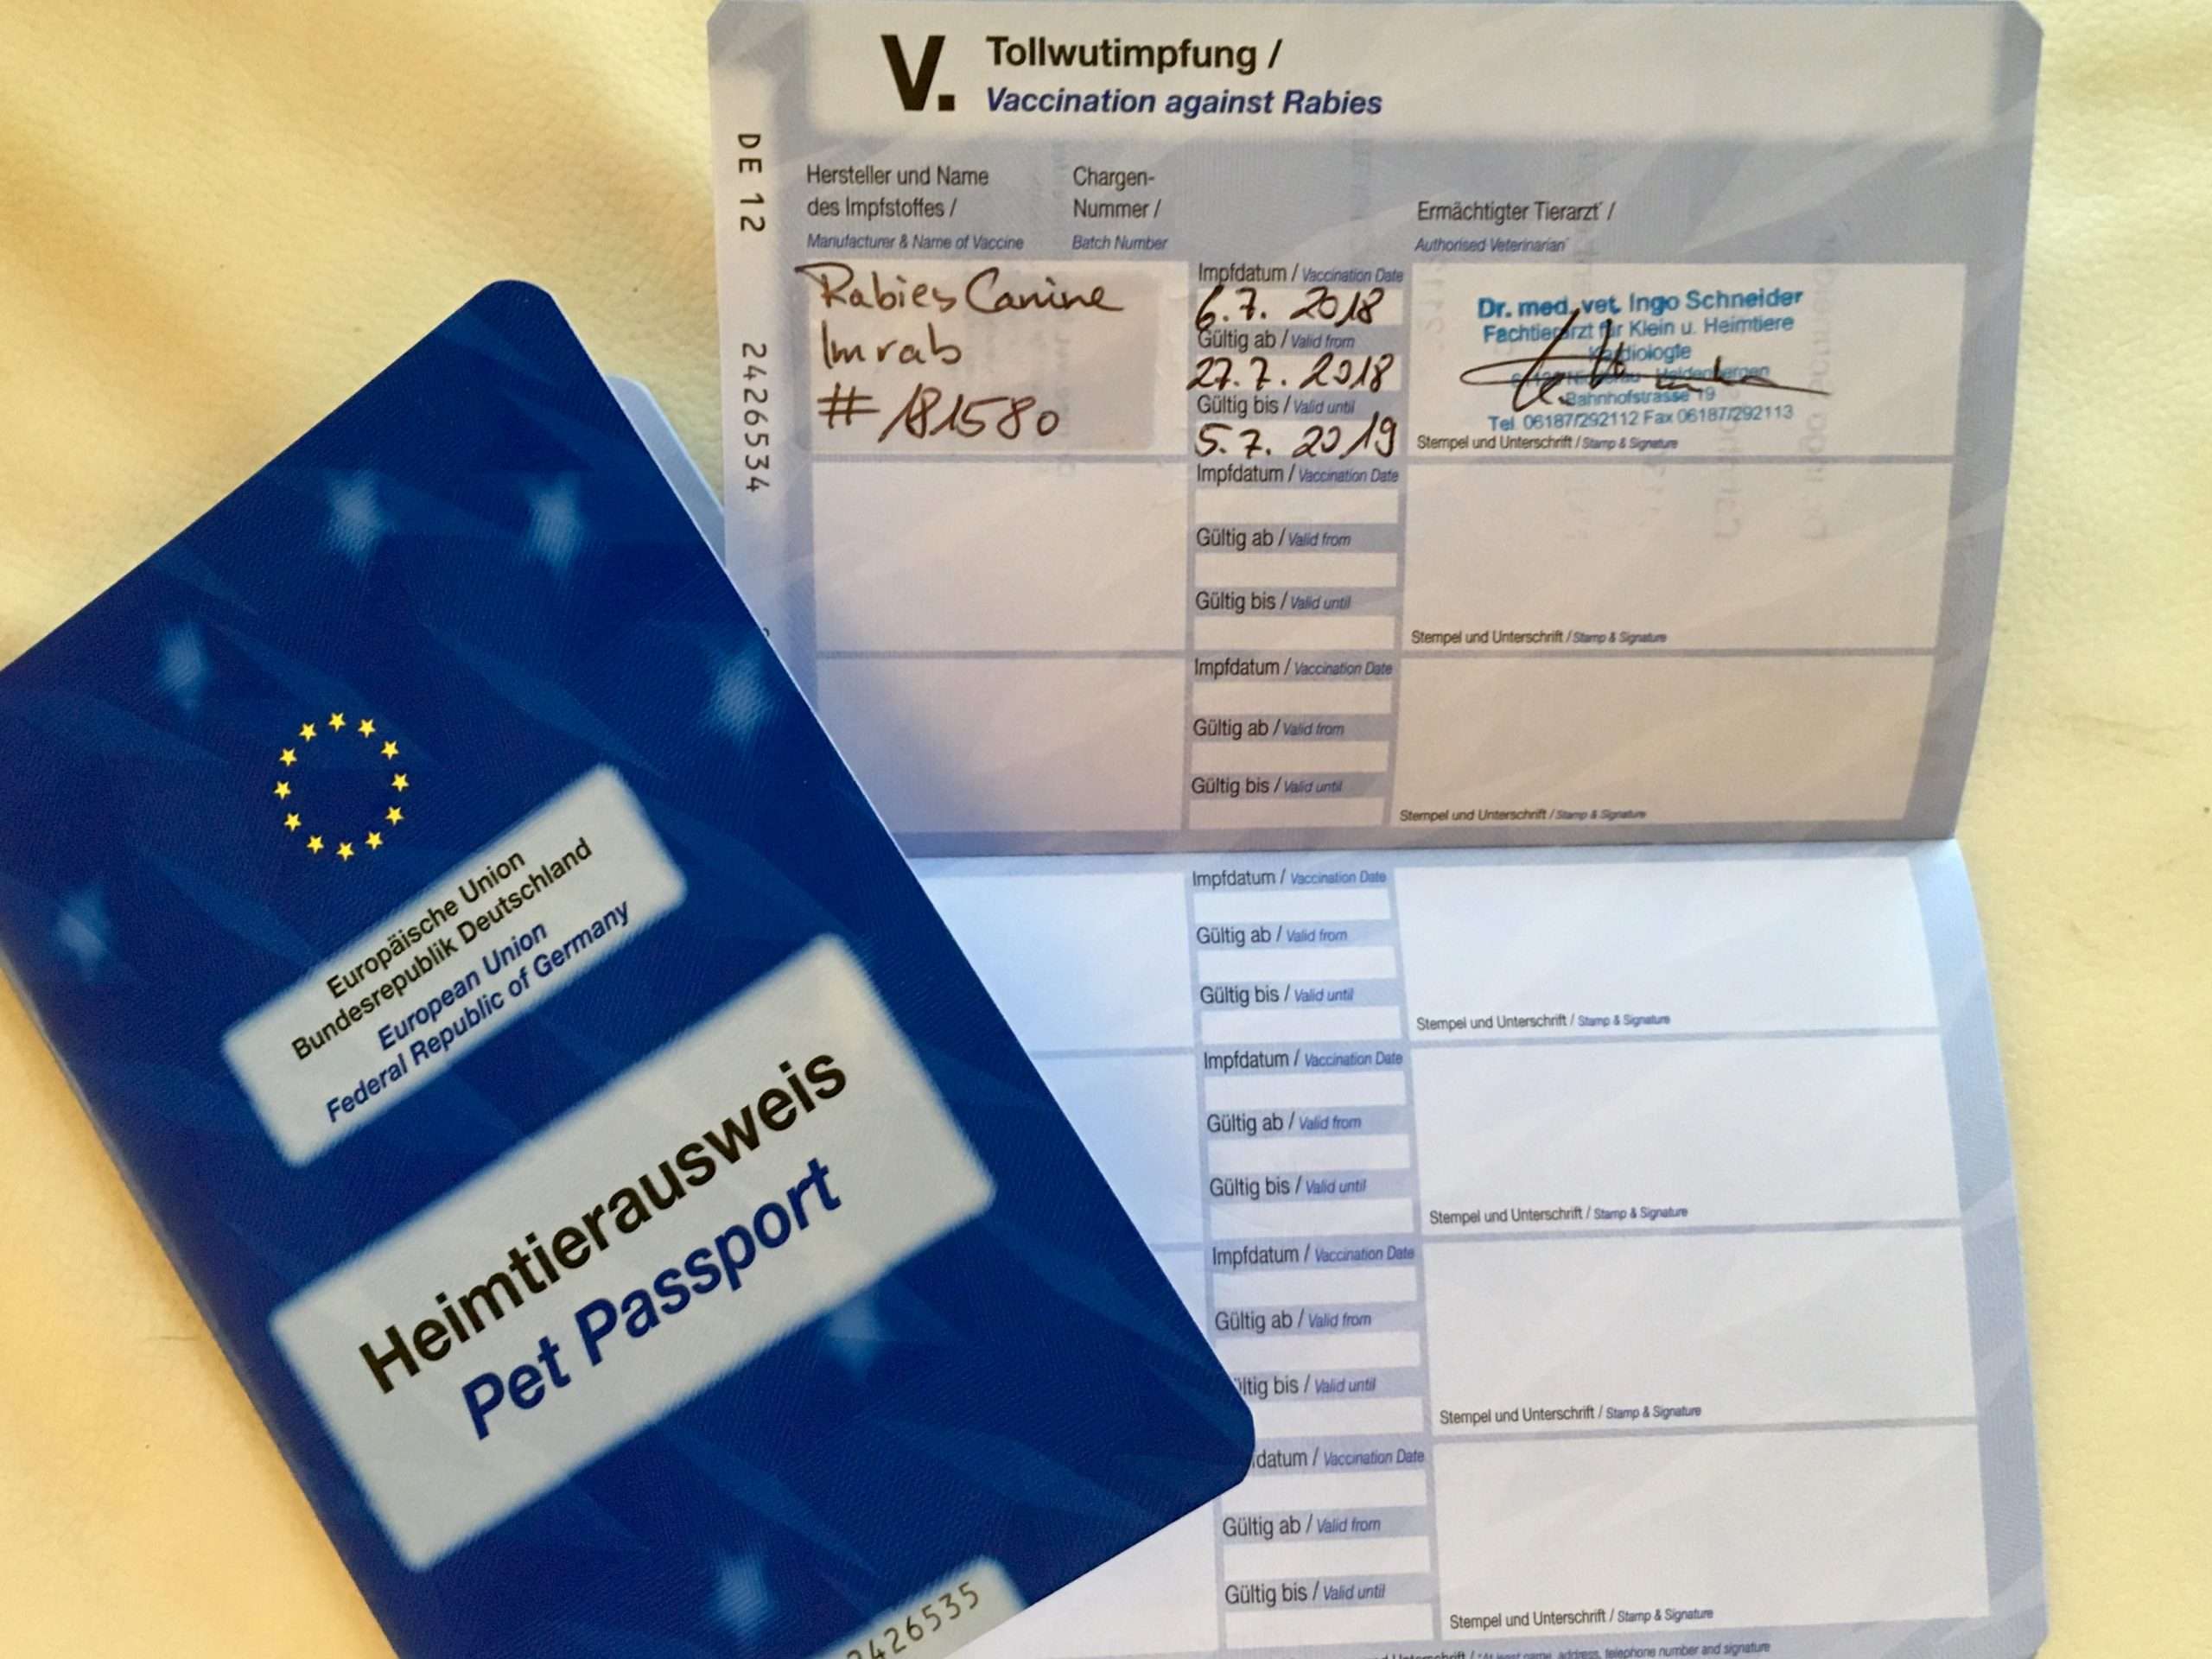 V.
Tollwutimpfung /
Vaccination against Rabies
DE 12 2426534
Hersteller und Name
des Impfstoffes /
Manufacturer & Name of Vaccine
Chargen-
Nummer /
Batch Number
Ermächtigter Tierarzt* /
Authorised Veterinarian*
Rabies Canine
Imrab
# 181580
Impfdatum / Vaccination Date
6.7. 2018
Gültig ab / Valid from
27.7.2018
Gültig bis / Valid until
5.7. 2019
Dr. med. vet. Ingo Schneider
Fachtierarzt für Klein u. Heimtiere
Kardiologie
Heldenbergen
Bahnhofstrasse 19
Tel. 06187/292112 Fax 06187/292113
Stempel und Unterschrift / Stamp & Signature
Impfdatum / Vaccination Date
Gültig ab / Valid from
Gültig bis / Valid until
Stempel und Unterschrift / Stamp & Signature
Impfdatum / Vaccination Date
Gültig ab / Valid from
Gültig bis / Valid until
Stempel und Unterschrift / Stamp & Signature
Impfdatum / Vaccination Date
Gültig ab / Valid from
Gültig bis / Valid until
Stempel und Unterschrift / Stamp & Signature
Impfdatum / Vaccination Date
Gültig ab / Valid from
Gültig bis / Valid until
Stempel und Unterschrift / Stamp & Signature
Impfdatum / Vaccination Date
Gültig ab / Valid from
ltig bis / Valid until
Stempel und Unterschrift / Stamp & Signature
datum / Vaccination Date
Gültig ab / Valid from
Gültig bis / Valid until
Stempel und Unterschrift / Stamp & Signature
name, address, telephone number and signature
Europäische Union
Bundesrepublik Deutschland
European Union
Federal Republic of Germany
Heimtierausweis
Pet Passport
2426535